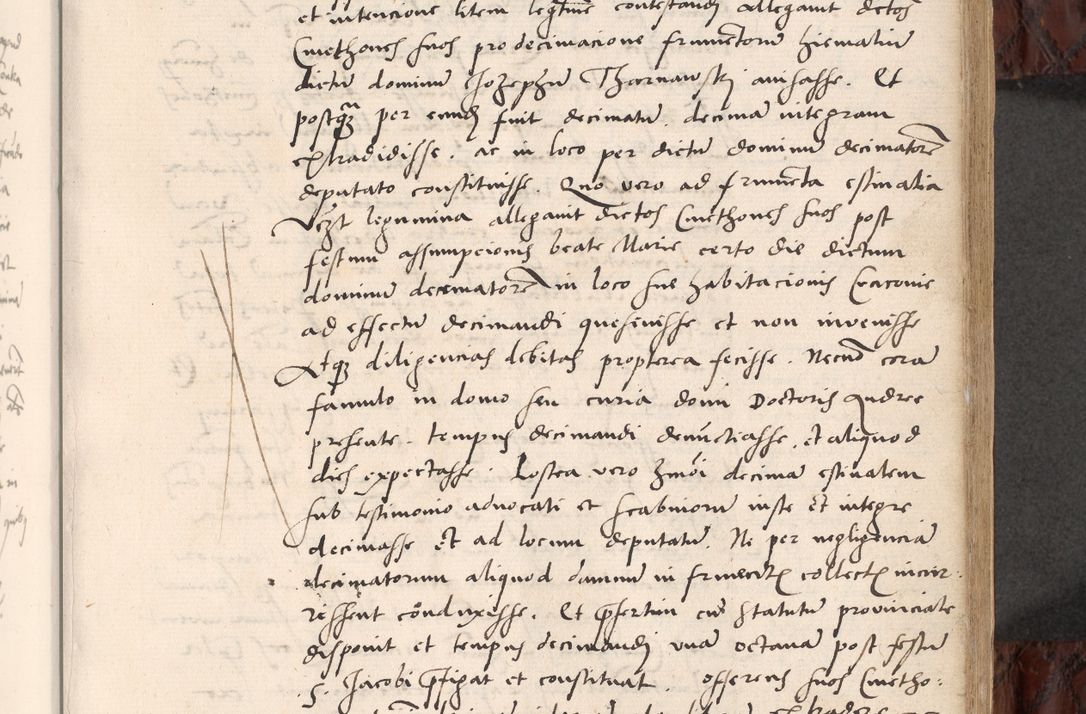 et intencione litem legittime contestandj allegauit dictos
Cmethones suos pro decimacione frumentorum hiemaliu
dictu dominu Jozephu Tharnawskj auisasse. Et
postqz per eundj fuit decimatu. decima integram
extradidisse. ac in loco per dictu dominu decimatore
deputato constituisse. Quo vero ad frumenta estiualia
vzt legumina allegauit dictos Cmethones suos post
festum assumpcionis beate Marie certo die dictum
dominu decimatore in loco sue habitacionis Cracouie
ad effectu decimandi quesiuisse et non inuenisse
Atqz diligencias debitas propterea fecisse. Necno cora
famulo in domo seu curia domi Doctoris Andree
presente. tempus decimandi denuctiasse. et aliquod
dies expectasse. Postea vero decima estiualem
sub testimonio aduocati et scabinorum iuste et integre
decimasse et ad locum deputatu. Ne per negligencia
decimatorum aliquod damnu in frumetis collectis incur:
ressent conduxisse. Et pfertim cu statutu prouinciale
disponit et tempus decimandj vna octaua post festu
S. Jacobi pfigat et constituat. offerens suos Cmetho: